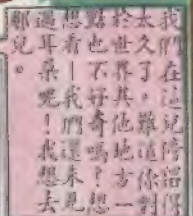 我們在這兒停得
太久了，難道你對
於世界其他地方一
點也不好奇嗎？想
想看—我們還未見
過耳朵呢！我想去
那兒。